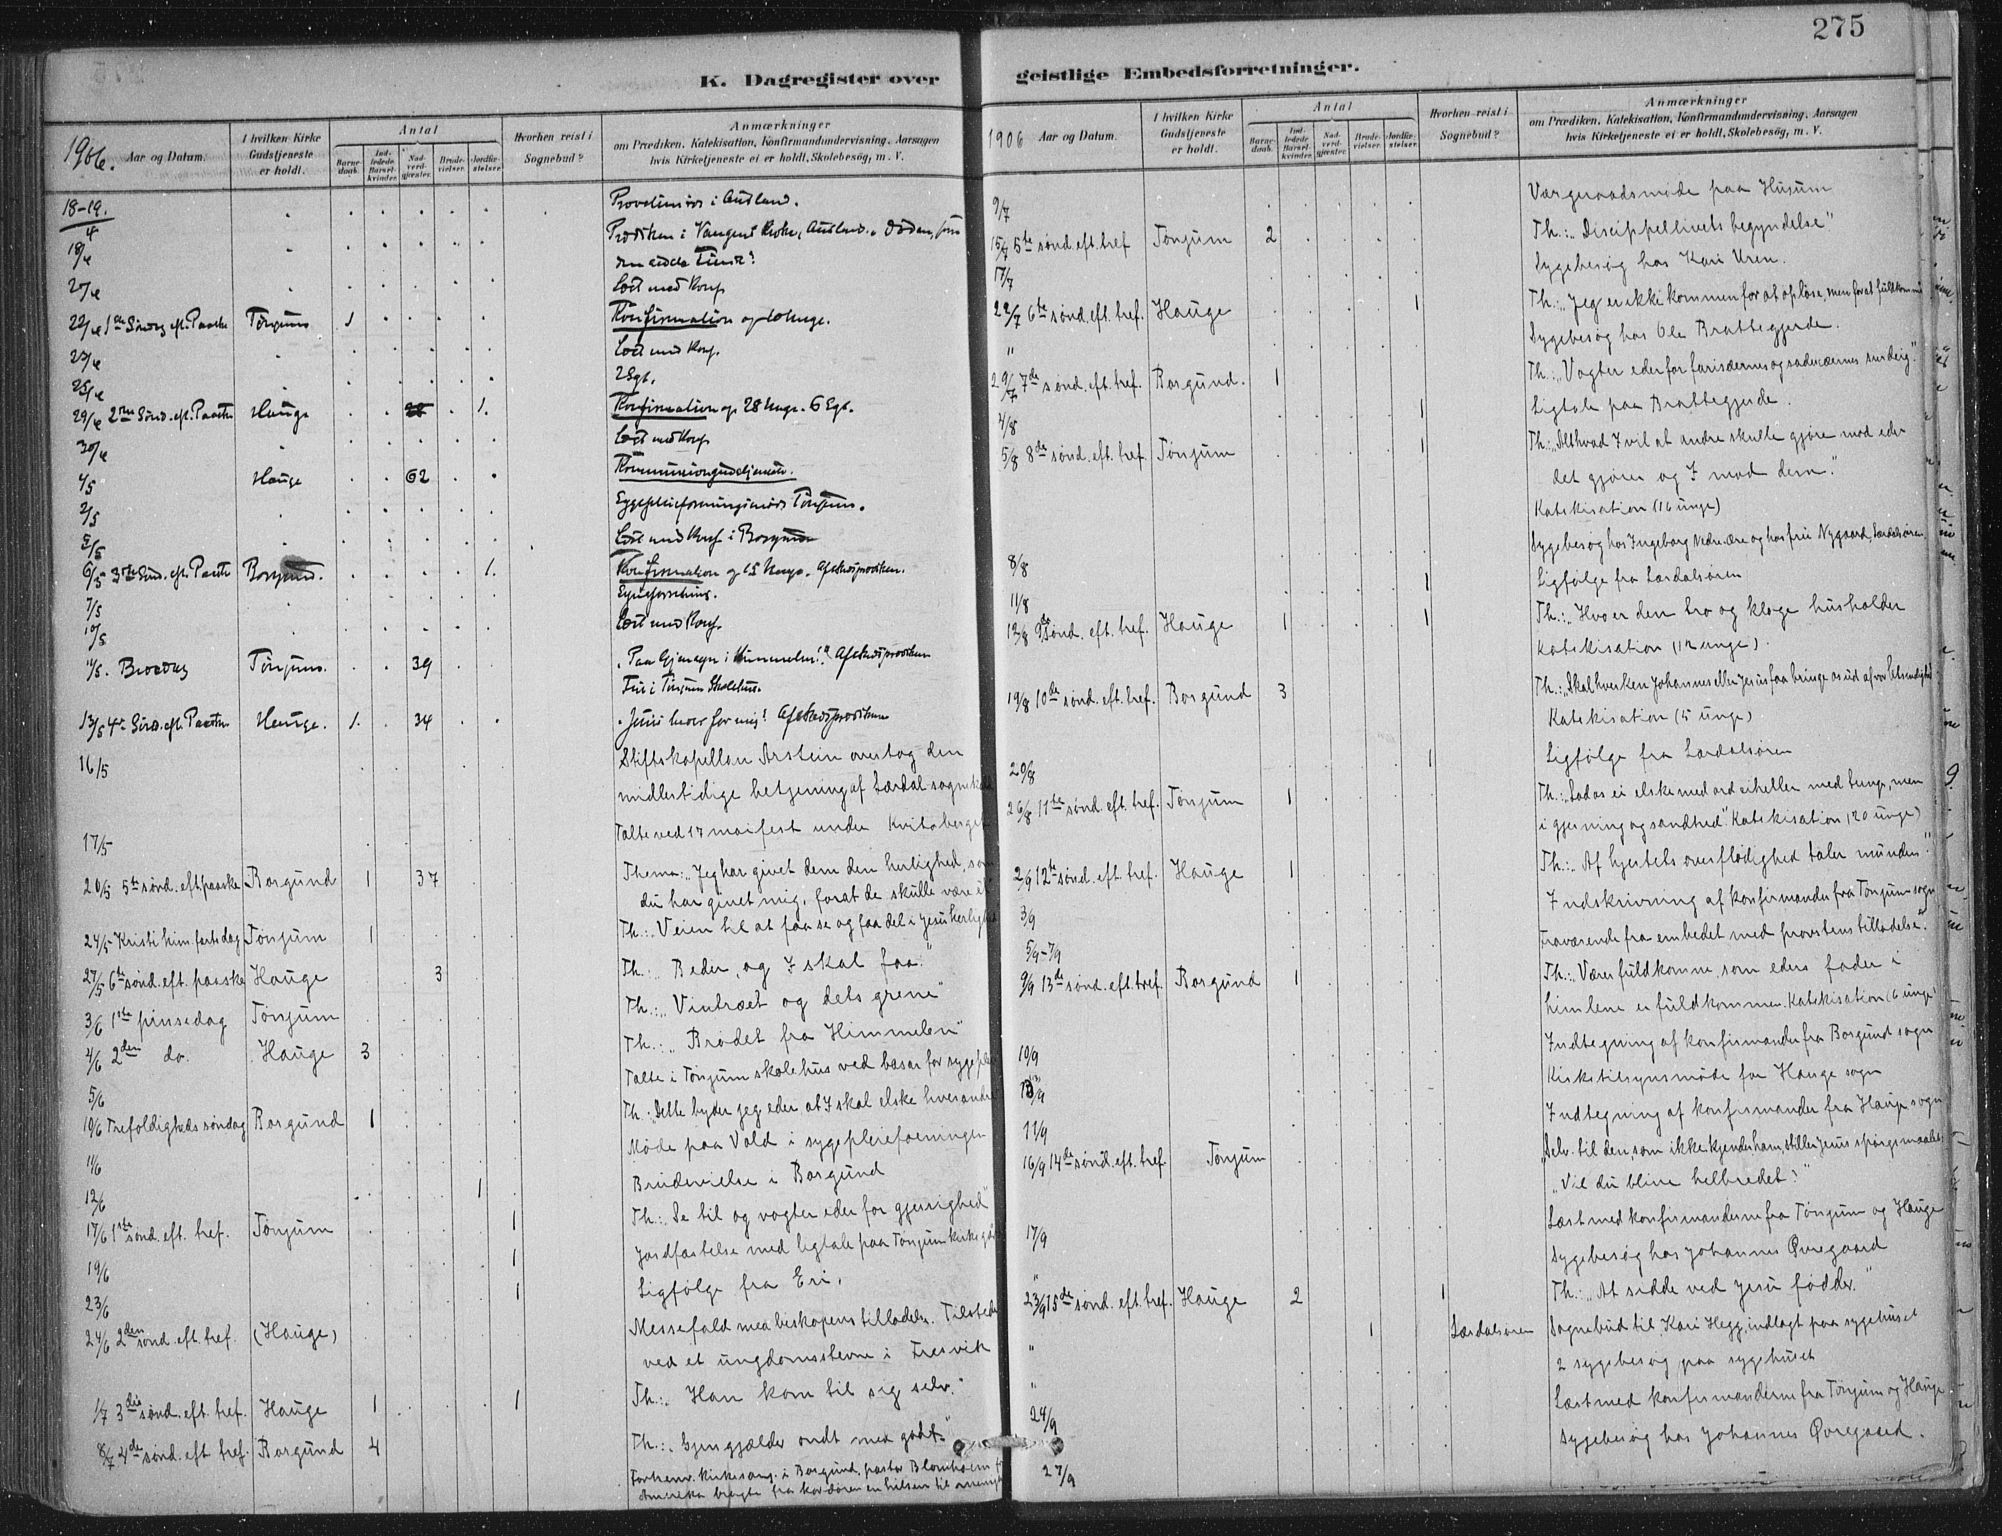 275
K. Dagregister over
geistlige Embedsforretninger.
1906. Aar og Datum.
I hvilken Kirke Gudstjeneste er holdt.
Antal
Barnedaab.
Indledede Barselkvinder.
Nadverdgjester.
Brudevielser.
Jordfæstelser.
Hvorhen reist i Sognebud?
Anmærkninger
om Prædiken, Katekisation, Konfirmandundervisning, Aarsagen
hvis Kirketjeneste ei er holdt, Skolebesøg, m. V.
18-19./4
19/4
20/4 Læst med Konf.
22/4 1ste Søndag eft. Paaske Tönjum 1 Konfirmation
23/4 Læst med Konf.
25/4
29/4 2den Sönd. eft. Paaske Hauge 1. Konfirmation
30/4 Læst med Konf.
4/5 Hauge 62 Kommuniongudstjeneste.
2/5
5/5 Læst med Konf. i Borgund
6/5 3die Sönd. eft. Paaske Borgund. 1. Konfirmation og 15 Unge. Afskedsprædiken.
7/5
10/5 Læst med Konf.
11/5. Bededag Tönjum. 39 Afskedsprædiken
13/5 4de Sönd. eft. Paaske Hauge. 1. 34 Afskedsprædiken
16/5 Stiftskapellan Arstein overtog den
midlertidige betjening af Lærdal sognekald
17/5 Talte ved 17 mai fest under Kvitaberget
20/5 5te sönd. eft. paaske Borgund 1 37 Thema: "Jeg har givet dem den herlighed, som
du har givet mig, forat de skulle være et"
24/5 Kristi him. fartsdag Tönjum 1 Th.: "Veien til at faa se og faa del i Jesu herlighed
27/5 6te sönd. eft. paaske Hauge 3 Th.: "Beder, og I skal faa."
3/6 1ste pinsedag Tönjum Th.: "Vintræet og dets grene"
4/6 2den do. Hauge 3 Th.: "Brödet fra Himmelen"
5/6 Talte i Tönjum skolehus ved basar for sygeplei
10/6 Trefoldigheds söndag Borgund 1 Th.: "Dette byder jeg eder, at I skal elske hverandre
11/6 Möde paa Vold i sygepleieforeningen
12/6 1 Brudevielse i Borgund
17/6 1ste sönd. eft. tref. Tönjum 1 Th.: "Se til og vogter eder for gjerrighed"
19/6 1 Jordfæstelse med ligtale paa Tönjum kirkegaard
23/6 1 Ligfölge fra Eri.
24/6 2den sönd. eft. tref. (Hauge) Messefald med biskopens tilladelse. Tilstede
ved et ungdomsstevne i Fresvik
1/7 3die sönd. eft. tref. Hauge 1 1 Th.: "Han kom til sig selv."
8/7 4de sönd. eft. tref. Borgund 4 Th.: "Gjengjælder ondt med godt."
1906 Aar og Datum.
I hvilken Kirke Gudstjeneste er holdt.
Antal
Barnedaab.
Indledede Barselkvinder.
Nadverdgjester.
Brudevielser.
Jordfæstelser.
Hvorhen reist i Sognebud?
Anmærkninger
om Prædiken, Katekisation, Konfirmandundervisning, Aarsagen
hvis Kirketjeneste ei er holdt, Skolebesøg, m. V.
9/7 Værgeraadsmöde paa Husum
15/7 5te sönd. eft. tref Tönjum 2 Th.: "Discippellivets begyndelse"
17/7 Sygebesög hos Kari Uren.
22/7 6te sönd. eft. tref. Hauge 1 Th.: "Jeg er ikke kommen for at oplöse, men for at fuldkomme
" Sygebesög hos Ole Brattegjerde.
29/7 7de sönd. eft. tref. Borgund. 1 Th.: "Vogter eder for farisæernes og saducæernes surdeig."
4/8 1 Ligtale paa Brattegjerde.
5/8 8de sönd. eft. tref Tönjum 1 Th.: "Alt hvad I vil at andre skulle gjöre mod eder
det gjörer og I mod dem."
Katekisation (16 unge)
8/8 Sygebesög hos Ingeborg Nedre-ære og hos frue Nygaard, Lærdalsören
11/8 1 Ligfölge fra Lærdalsören
12/8 9de sönd. eft. tref. Hauge 1 1 Th.: "Hvo er den tro og kloge husholder
Katekisation (12 unge).
19/8 10de sönd. eft. tref. Borgund 3
Katekisation (5 unge)
20/8 1 Ligfölge fra Lærdalsören
26/8 11te sönd. eft. tref. Tönjum 1 Th.: "Lad os ei elske med ord ei heller med tunge, men
i gjerning og sandhed". Katekisation (20 unge)
2/9 12te sönd. eft. tref. Hauge 1 Th.: "Af hjertets overflödighed taler munden."
3/9 Indskrivning af konfirmander fra Tönjum sogn
5/9-7/9 Fraværende fra embedet med provstens tilladelse.
9/9 13de sönd. eft. tref. Borgund 1 Th.: "Værer fuldkomne, som eders fader i
himlene er fuldkommen. Katekisation (6 unge)
10/9 Indtegning af konfirmander fra Borgund sogn
13/9 Kirketilsynsmöde for Hauge sogn
11/9 Indtegning af konfirmander fra Hauge sogn
16/9 14de sönd. eft. tref Tönjum "Selv til den som ikke kjender ham, stiller Jesus spörgsmaalet
"Vil du blive helbredet?"
17/9 Læst med konfirmanderne fra Tönjum og Hauge
" Sygebesög hos Johannes Övregaard
23/9 15de sönd. eft. tref. Hauge 2 1 Th.: "At sidde ved Jesu födder."
" 1 Lærdalsören Sognebud til Kari Hegg, indlagt paa sygehuset
" 2 sygebesög paa sygehuset
24/9 Læst med konfirmanderne fra Tönjum og Hauge
27/9 Sygebesög hos Johannes Övregaard.